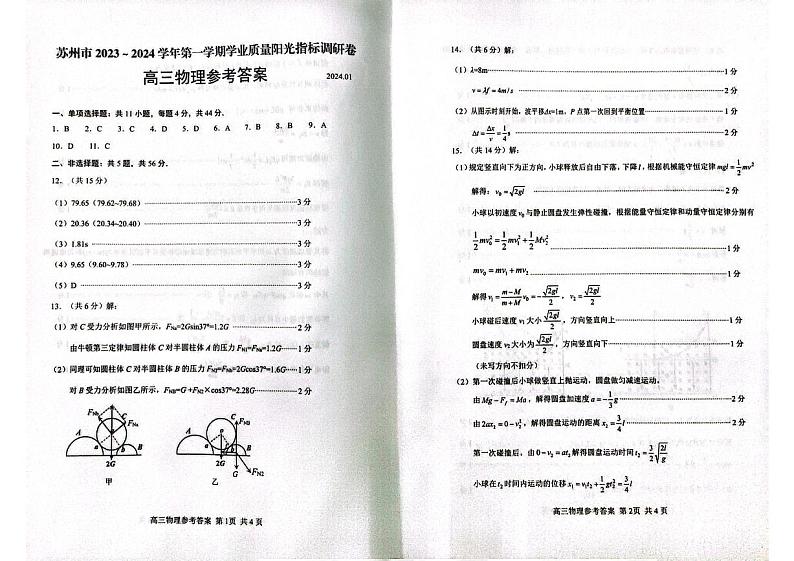 苏州市 2023～2024 学年第一学期学业质量阳光指标调研卷
高三物理参考答案 2024.01
一、单项选择题：共 11 小题，每题 4 分，共 44 分．
1．B 2．C 3．C 4．D 5．D 6．A 7．B 8．B 9．A
10．D 11．C
二、非选择题：共 5 题，共 56 分．
12．（共 15 分）
（1）79.65（79.62~79.68）3 分
（2）20.36（20.34~20.40）3 分
（3）1.81s 3 分
（4）9.65（9.60~9.78）3 分
（5）D 3 分
13．（共 6 分）解：
（1）对 C 受力分析如图甲所示，FNa=2Gsin37°=1.2G 2 分
由牛顿第三定律知圆柱体 C 对半圆柱体 A 的压力 FN1=FNa=1.2G 1 分
（2）同理可知圆柱体 C 对半圆柱体 B 的压力 FN2=FNb=2Gcos37°=1.6G 1 分
对 B 受力分析如图乙所示，FNB=G+FN2×cos37°=2.28G 2 分
FNb C FNa A B 2G
C FN3 A B 2G G FN2
甲 乙
高三物理参考答案 第 1页 共 4页
14．（共 6 分）解：
（1）λ=8m 1 分
v = λf = 4m/s 2 分
（2）从图示时刻开始，波平移Δx=1m，P 点第一次回到平衡位置 1 分
Δt = Δx/v = 1/4 s 2 分
15．（共 14 分）解：
（1）规定竖直向下为正方向，小球释放后自由下落，下降 l，根据机械能守恒定律 mgl = 1/2 mv²
解得：v₀ = √(2gl) 2 分
小球以初速度 v₀ 与静止圆盘发生弹性碰撞，根据能量守恒定律和动量守恒定律分别有
1/2 mv₀² = 1/2 mv₁² + 1/2 Mv₂² 1 分
mv₀ = mv₁ + mv₂ 1 分
解得 v₁ = (m−M)/(m+M) v₀ = −√(2gl)/2，v₂ = √(2gl)/2
小球碰后速度 v₁ 大小 √(2gl)/2，方向竖直向上 1 分
圆盘速度 v₂ 大小为 √(2gl)/2，方向竖直向下 1 分
（未写方向不扣分）
（2）第一次碰撞后小球做竖直上抛运动，圆盘做匀减速运动．
由 Mg − Ff = Ma，解得圆盘加速度 a = −1/3 g 2 分
由 2ax₂ = 0 − v₂²，解得圆盘运动的距离 x₂ = 3/4 l 2 分
第一次碰撞后，由 0 − v₂ = at₂ 解得圆盘运动时间 t₂ = 3/2 √(2l/g)
小球在 t₂ 时间内运动的位移 x₁ = v₁t₂ + 1/2 gt₂² = 3/4 l
高三物理参考答案 第 2页 共 4页